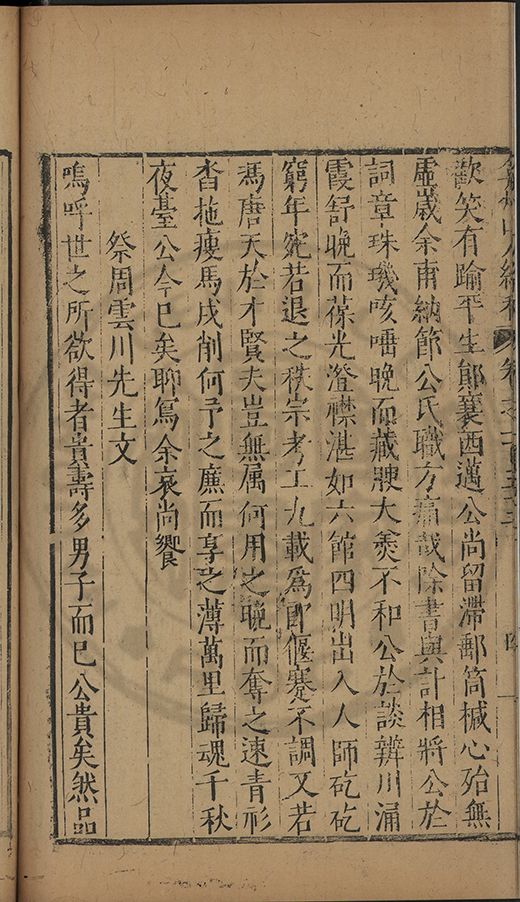 歡笑有踰平生鄖襄西邁公尚留滯郵筒椷心殆無
虛歲余甫納節公氏職方痛哉除書與計相將公於
詞章珠璣咳唾晚而藏𫘝大羹不和公於談辨川涌
霞舒晚而葆光澄襟湛如六館四明出入人師矻矻
窮年宛若退之秩宗考工九載為郎偃蹇不調又若
馮唐天於才賢夫豈無属何用之晚而奪之速青衫
沓拖瘦馬戌削何予之廉而享之薄萬里歸魂千秋
夜臺公今已矣聊寫余哀尚饗
祭周雲川先生文
嗚呼世之所欲得者貴壽多男子而已公貴矣然品